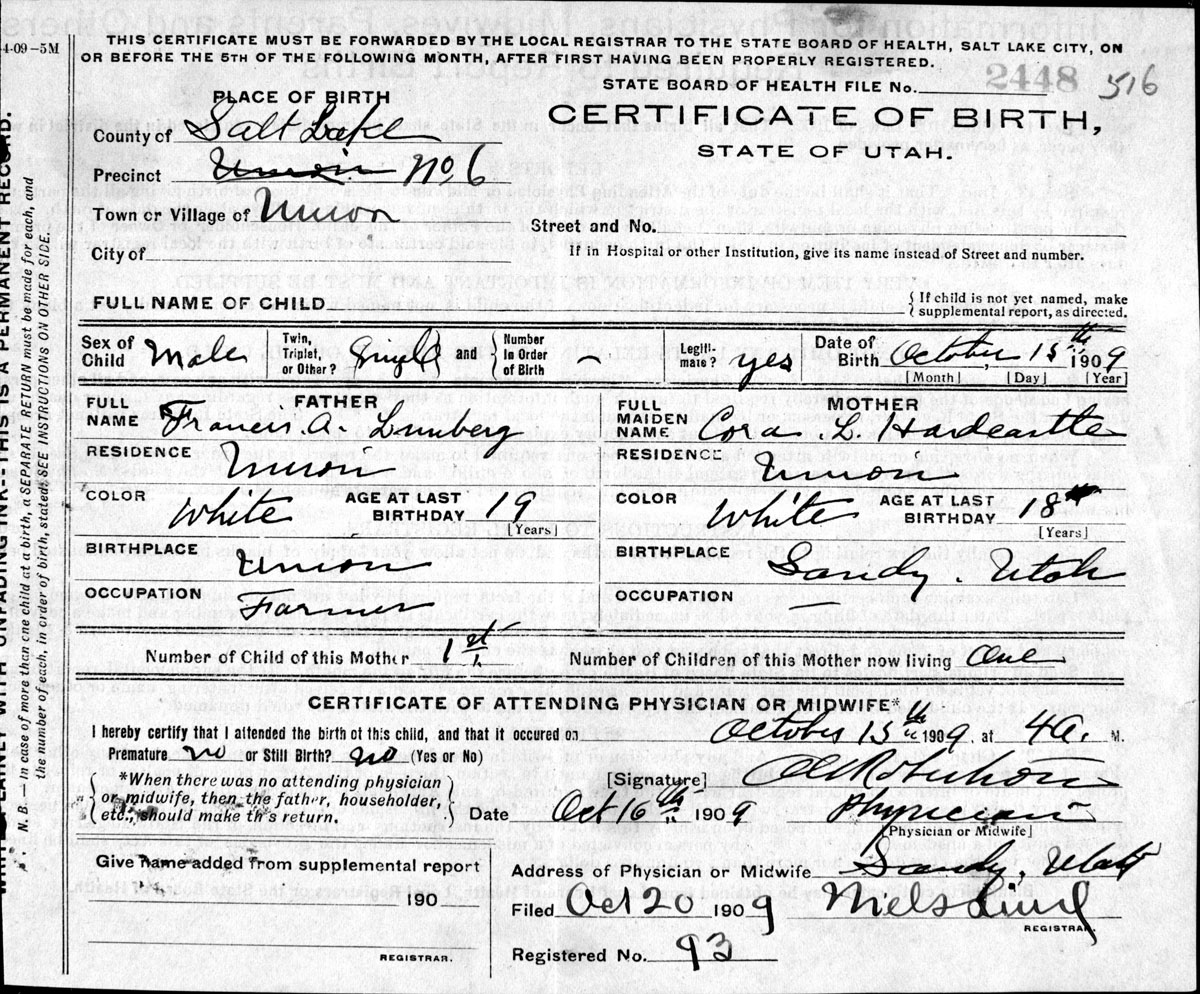 4-09-5M
THIS CERTIFICATE MUST BE FORWARDED BY THE LOCAL REGISTRAR TO THE STATE BOARD OF HEALTH, SALT LAKE CITY, ON
OR BEFORE THE 5TH OF THE FOLLOWING MONTH, AFTER FIRST HAVING BEEN PROPERLY REGISTERED.
STATE BOARD OF HEALTH FILE No. 2448 516
PLACE OF BIRTH
CERTIFICATE OF BIRTH,
STATE OF UTAH.
County of Salt Lake
Precinct Union No. 6
Town or Village of Union
Street and No.
City of
If in Hospital or other Institution, give its name instead of Street and number.
FULL NAME OF CHILD
{ If child is not yet named, make
supplemental report, as directed.
Sex of Child Male
Twin, Triplet, or Other? Single } and { Number in Order of Birth
Legiti-mate? yes
Date of Birth October 15th, 1909
[Month] [Day] [Year]
FATHER
FULL NAME Francis. A.
RESIDENCE Union
COLOR White
AGE AT LAST BIRTHDAY 19
[Years]
BIRTHPLACE Union
OCCUPATION Farmer
MOTHER
FULL MAIDEN NAME Cora. L. Hardcastle
RESIDENCE Union
COLOR White
AGE AT LAST BIRTHDAY 18
[Years]
BIRTHPLACE Sandy. Utah
OCCUPATION —
Number of Child of this Mother 1st
Number of Children of this Mother now living One
CERTIFICATE OF ATTENDING PHYSICIAN OR MIDWIFE*
I hereby certify that I attended the birth of this child, and that it occured on October 15th 1909, at 4 a. M.
Premature no or Still Birth? no (Yes or No)
{ *When there was no attending physician
or midwife, then the father, householder,
etc., should make th's return. }
[Signature]
Date Oct 16th 1909 Physician
[Physician or Midwife]
Give name added from supplemental report
190
REGISTRAR.
Address of Physician or Midwife Sandy, Utah
Filed Oct 20 1909 Niels Lind
REGISTRAR.
Registered No. 93
WRITE PLAINLY WITH UNFADING INK--THIS IS A PERMANENT RECORD.
N. B. — in case of more than one child at birth, a SEPARATE RETURN must be made for each, and
the number of each, in order of birth, stated. SEE INSTRUCTIONS ON OTHER SIDE.